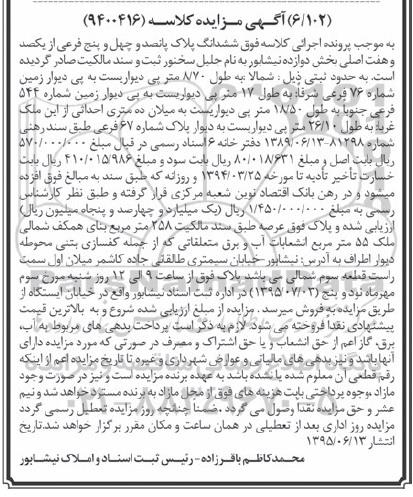 (۶/۱۰۲) آگهی مزایده کلاسه (۹۴۰۰۴۱۶)
به موجب پرونده اجرائی کلاسه فوق ششدانگ پلاک پانصد و چهل و پنج فرعی از یکصد
و هفت اصلی بخش دوازده نیشابور به نام جلیل سخنور ثبت و سند مالکیت صادر گردیده
است. به حدود ثبتی ذیل : شمالا :به طول ۸/۷۰ متر پی دیواریست به پی دیوار زمین
شماره ۷۶ فرعی شرقا: به طول ۱۷ متر پی دیواریست به پی دیوار زمین شماره ۵۴۴
فرعی جنوبا به طول ۱۸/۵۰ متر پی دیواریست به میلان ده متری احداثی از این ملک
غربا: به طول ۲۶/۱۰ متر پی دیواریست به دیوار پلاک شماره ۶۷ فرعی طبق سند رهنی
۸۱۲۹۸-۱۳۸۹/۰۶/۱۳ دفتر خانه ۶ اسناد رسمی در قبال مبلغ ۵۷۰/۰۰۰/۰۰۰
ریال بابت اصل و مبلغ ۸۰/۰۱۸/۶۳۱ ریال بابت سود و مبلغ ۴۱۰/۰۱۵/۹۸۶ ریال بابت
خسارت تأخیر تأدیه تا مورخه ۱۳۹۴/۰۳/۲۵ و روزانه که طبق سند به مبالغ فوق افزده
میشود و در رهن بانک اقتصاد نوین شعبه مرکزی قرار گرفته و طبق نظر کارشناس
رسمی به مبلغ ۱/۴۵۰/۰۰۰/۰۰۰ ریال (یک میلیارد و چهارصد و پنجاه میلیون ریال)
ارزیابی شده و پلاک فوق عرصه طبق سند مالکیت ۲۵۸ متر مربع بنای همکف شمالی
ملک ۵۵ متر مربع انشعابات آب و برق متعلقاتی که از جمله کفسازی بتنی محوطه
دیوار اطراف به آدرس: نیشابور-خیابان سیمتری طالقانی جاده کاشمر میلان اول سمت
راست قطعه سوم شمالی می باشد پلاک فوق از ساعت ۹ الی ۱۲ روز شنبه مورخ سوم
مهرماه نود و پنج (۱۳۹۵/۰۷/۰۳) در اداره ثبت اسناد نیشابور واقع در خیابان ایستگاه از
طریق مزایده به فروش میرسد . مزایده از مبلغ ارزیابی شده شروع و به بالاترین قیمت
پیشنهادی نقدا فروخته می شود. لازم به ذکر است پرداخت بدهی های مربوط به آب،
برق، گاز اعم از حق انشعاب و یا حق اشتراک و مصرف در صورتی که مورد مزایده دارای
آنها باشد و نیز بدهی های مالیاتی و عوارض شهرداری و غیره تا تاریخ مزایده اعم از اینکه
رقم قطعی آن معلوم شده یا نشده باشد به عهده برنده مزایده است و نیز در صورت وجود
مازاد ،وجوه پرداختی بابت هزینه های فوق از محل مازاد به برنده مسترد خواهد شد و نیم
عشر و حق مزایده نقدا وصول می گردد . ضمنا چنانچه روز مزایده تعطیل رسمی گردد
مزایده روز اداری بعد از تعطیلی در همان ساعت و مکان مقرر برگزار خواهد شد.تاریخ
انتشار ۱۳۹۵/۰۶/۱۳
محمدکاظم باقرزاده - رئیس ثبت اسناد و املاک نیشابور